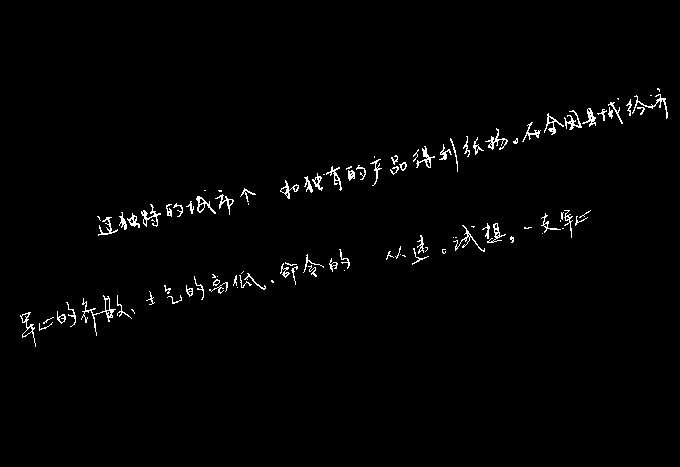 过独特的城市个 和独有的产品得到纸扬。在全国县域经济
军心的齐散、士气的高低、命令的 从违。试想。一支军心